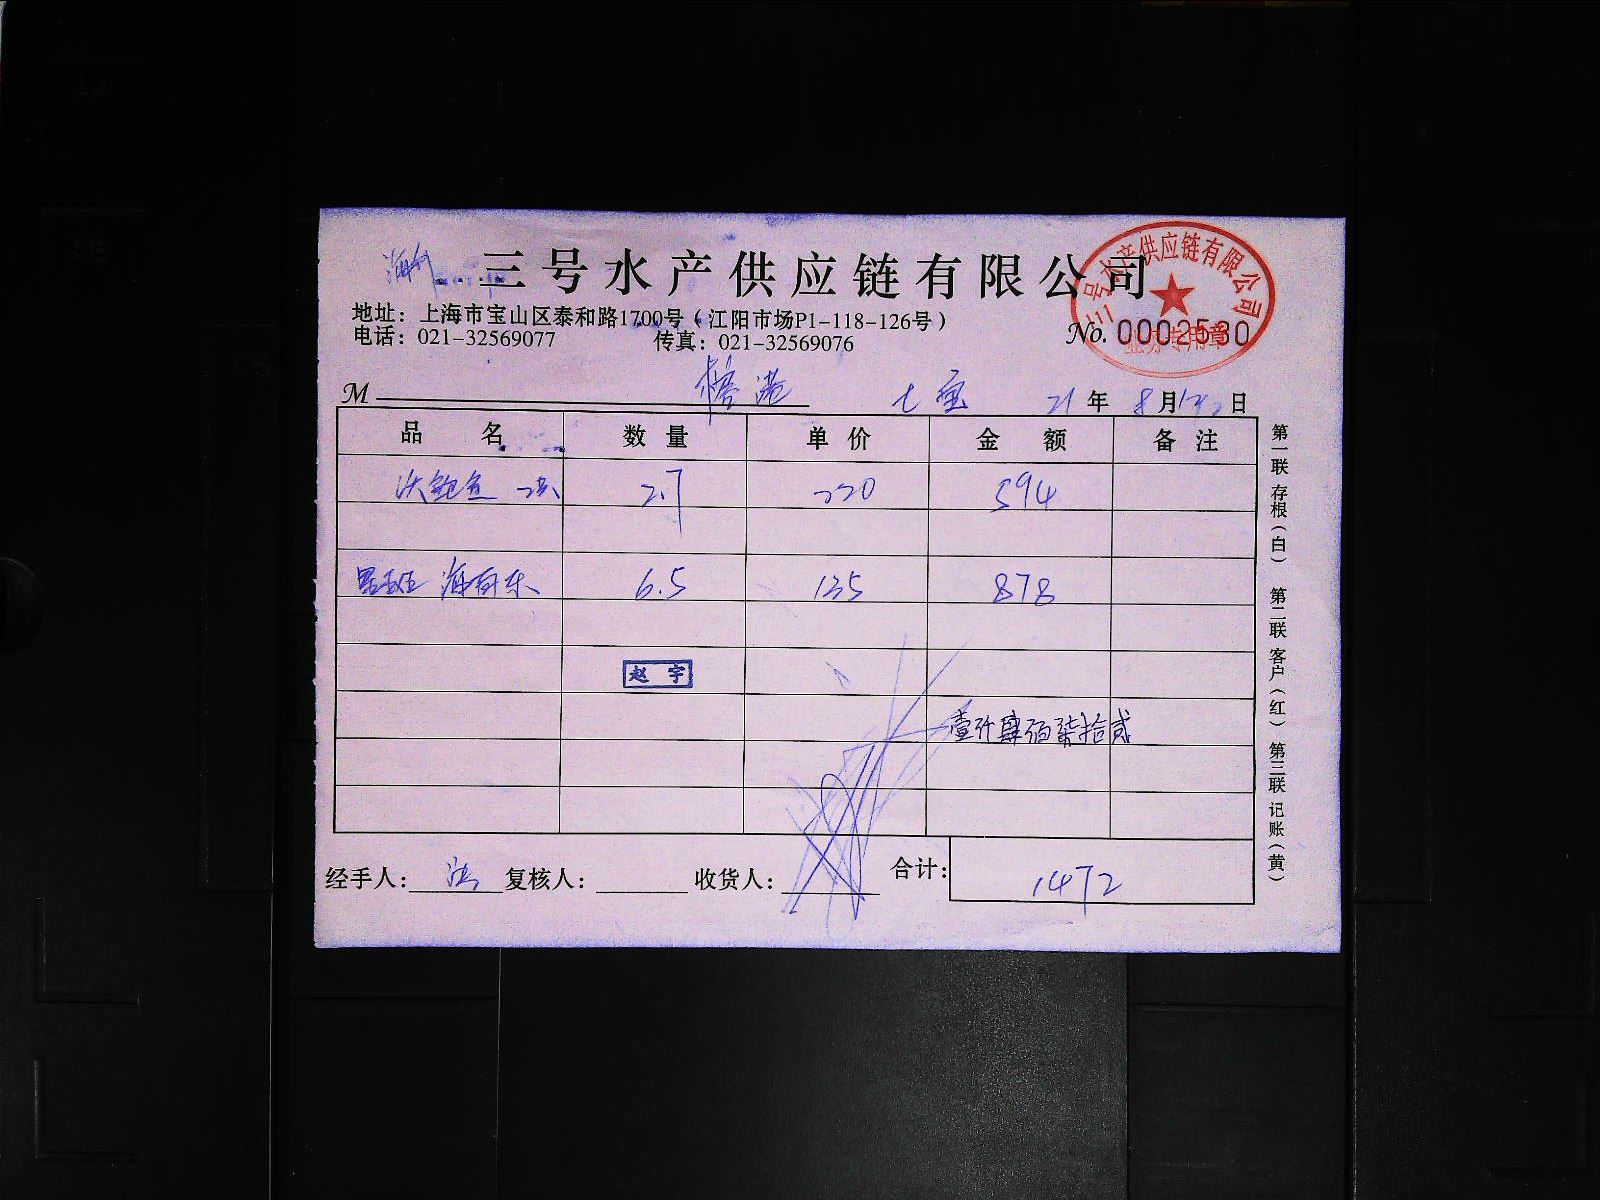 三号水产供应链有限公司
三号水产供应链有限公司
业务专用章
地址：上海市宝山区泰和路1700号（江阳市场P1-118-126号）
电话：021-32569077 传真：021-32569076
No. 0002530
M 榕港 七宝 21年 8月 日
品名 数量 单价 金额 备注
鲍鱼 2.7 220 594
6.5 135 878
赵宇
壹仟肆佰柒拾贰
经手人： 复核人： 收货人： 合计： 1472
第一联 存根（白） 第二联 客户（红） 第三联 记账（黄）